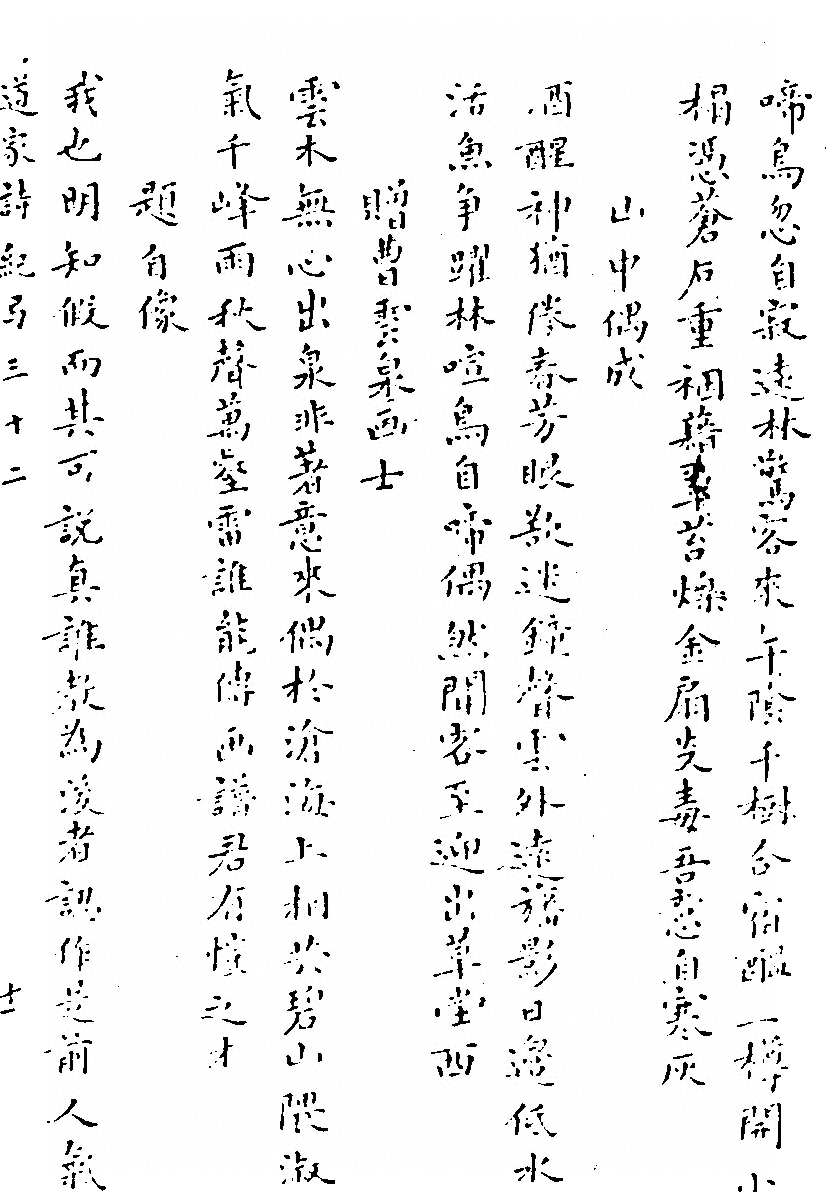 啼鳥忽自寂遠林驚客來午陰千樹合宿醞一樽開小
榻憑蒼石重裀藉翠苔爍金扇炎毒吾愛自寒灰
山中偶成
酒醒神猶倦春芳眼欲迷鐘聲雲外遠旛影日邊低水
活魚争躍林喧鳥自啼偶然聞客至迎出草堂西
贈曹雲泉画士
雲木無心出泉非著意來偶於滄海上相於碧山隈淑
氣千峰雨秋聲萬壑雷誰能傳画譜君有愷之才
題自像
我也明知假而其可説真誰教為後者認作是前人氣
道家詩紀弓三十二
十二